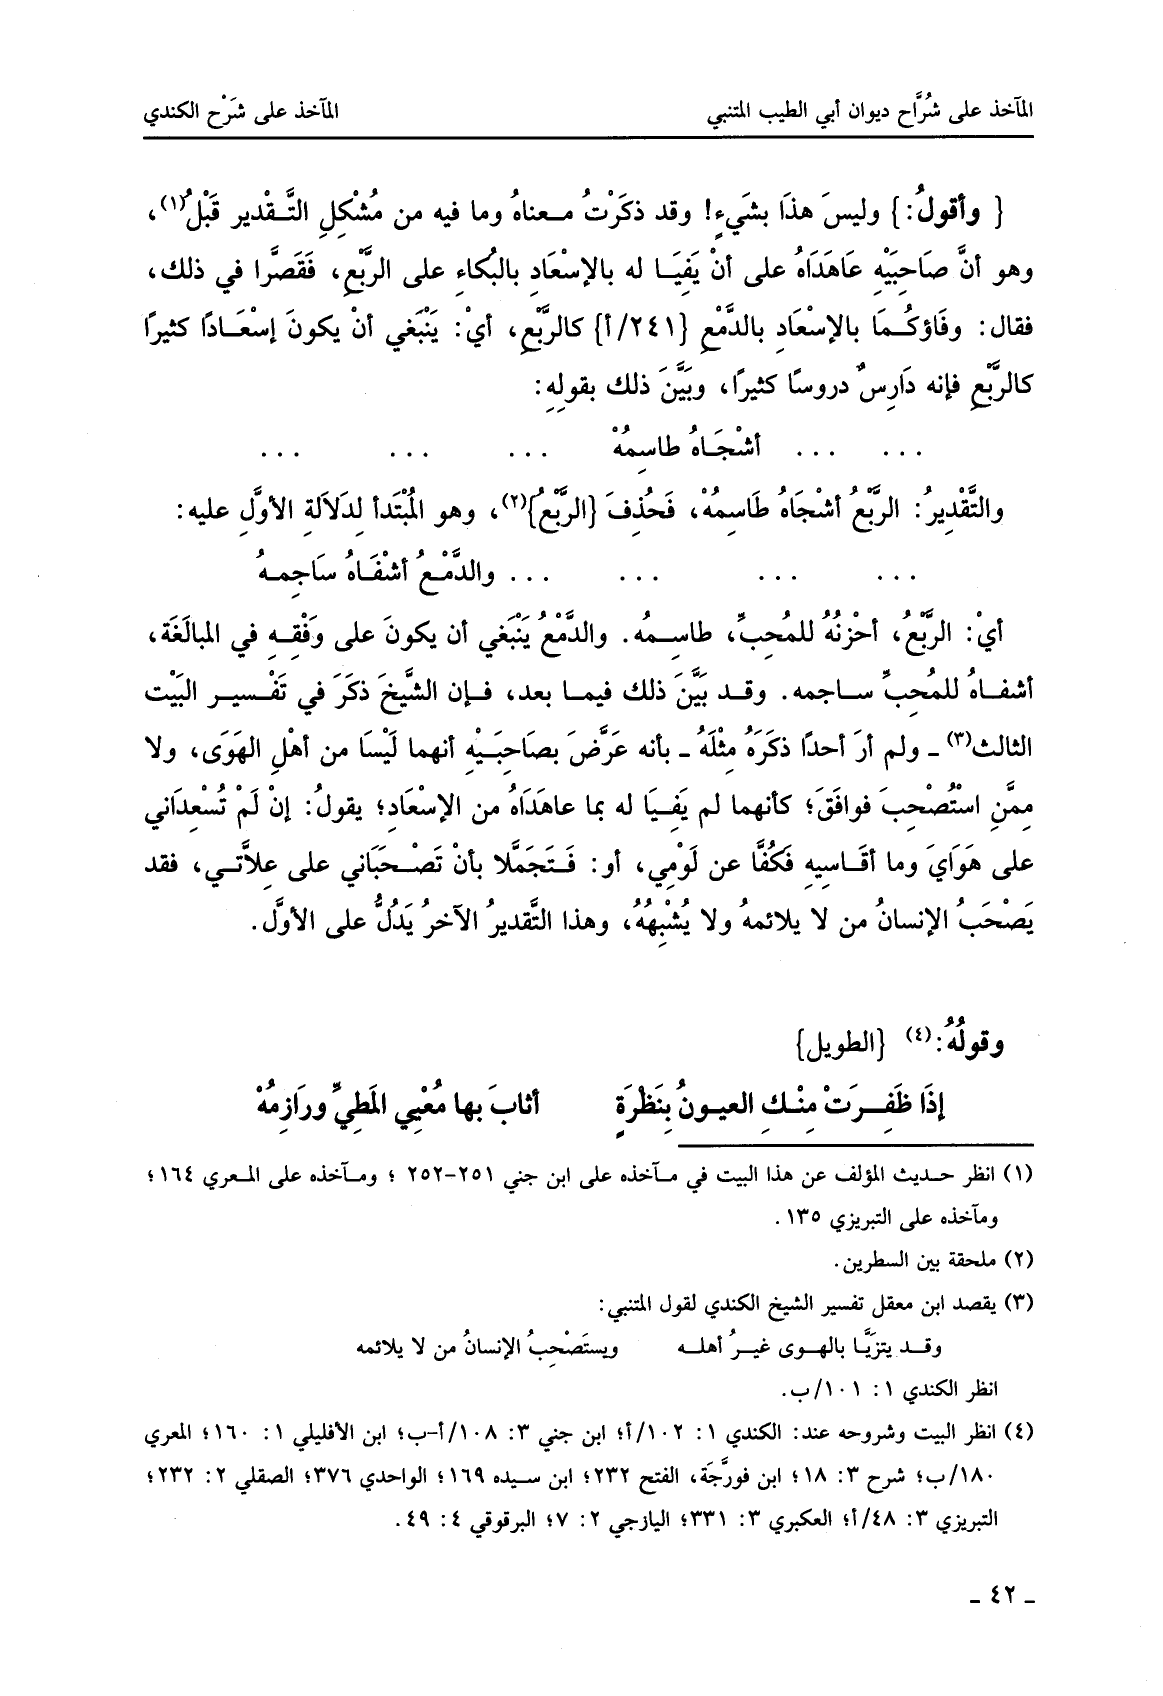 المآخذ على شُرَّاح ديوان أبي الطيب المتنبي المآخذ على شَرْح الكندي
{ وأقولُ: } وليسَ هذَا بشَيءٍ! وقد ذكَرْتُ معناهُ وما فيه من مُشْكِلِ التَّقدير قَبْلُ(١)،
وهو أنَّ صَاحِبَيْهِ عَاهَدَاهُ على أنْ يَفِيَا له بالإسْعَادِ بالبُكاءِ على الرَّبْعِ، فَقَصَّرا في ذلك،
فقال: وفَاؤكُمَا بالإسْعَادِ بالدَّمْعِ {٢٤١/أ} كالرَّبْعِ، أيْ: يَنْبَغي أنْ يكونَ إسْعَادًا كثيرًا
كالرَّبْعِ فإنه دَارِسٌ دروسًا كثيرًا، وبَيَّنَ ذلك بقولِهِ:
... ... أشْجَاهُ طاسِمُهْ ... ... ...
والتَّقْدِيرُ: الرَّبْعُ أشْجَاهُ طَاسِمُهْ، فَحُذِفَ {الرَّبْعُ}(٢)، وهو المُبْتَدأ لِدَلاَلَةِ الأوَّلِ عليه:
... ... ... ... والدَّمْعُ أشْفَاهُ سَاجِمهُ
أيْ: الرَّبْعُ، أحْزنُهُ للمُحِبِّ، طاسِمُه. والدَّمْعُ يَنْبَغي أن يكونَ على وَفْقِهِ في المبالَغَة،
أشفاهُ للمُحِبِّ ساجمه. وقد بَيَّنَ ذلك فيما بعد، فإن الشَّيخَ ذكَرَ في تَفْسير البَيْت
الثالث(٣) ـ ولم أرَ أحدًا ذكَرَهُ مِثْلَهُ ـ بأنه عَرَّضَ بصَاحِبَيْهِ أنهما لَيْسَا من أهْلِ الهَوَى، ولا
مِمَّنِ اسْتُصْحِبَ فوافَقَ؛ كأنهما لم يَفِيَا له بما عاهَدَاهُ من الإسْعَادِ؛ يقولُ: إنْ لَمْ تُسْعِدَاني
على هَوَايَ وما أقَاسِيهِ فَكُفَّا عن لَوْمِي، أو: فَتَجَمَّلا بأنْ تَصْحَبَاني على عِلاَّتي، فقد
يَصْحَبُ الإنسانُ من لا يلائمهُ ولا يُشْبِهُهُ، وهذا التَّقديرُ الآخرُ يَدُلُّ على الأوَّل.
وقولُهُ:(٤) {الطويل}
إذَا ظَفِرَتْ مِنْكِ العيونُ بِنَظْرَةٍ أثابَ بها مُعْيِي المَطِيِّ ورَازِمُهْ
(١) انظر حديث المؤلف عن هذا البيت في مآخذه على ابن جني ٢٥١-٢٥٢ ؛ ومآخذه على المعري ١٦٤؛
ومآخذه على التبريزي ١٣٥.
(٢) ملحقة بين السطرين.
(٣) يقصد ابن معقل تفسير الشيخ الكندي لقول المتنبي:
وقد يتزَيَّا بالهوى غيرُ أهله ويستَصْحِبُ الإنسانُ من لا يلائمه
انظر الكندي ١: ١٠١/ب.
(٤) انظر البيت وشروحه عند: الكندي ١: ١٠٢/أ؛ ابن جني ٣: ١٠٨/أ-ب؛ ابن الأفليلي ١: ١٦٠؛ المعري
١٨٠/ب؛ شرح ٣: ١٨؛ ابن فورَّجَة، الفتح ٢٣٢؛ ابن سيده ١٦٩؛ الواحدي ٣٧٦؛ الصقلي ٢: ٢٣٢؛
التبريزي ٣: ٤٨/أ؛ العكبري ٣: ٣٣١؛ اليازجي ٢: ٧؛ البرقوقي ٤: ٤٩.
ـ ٤٢ ـ